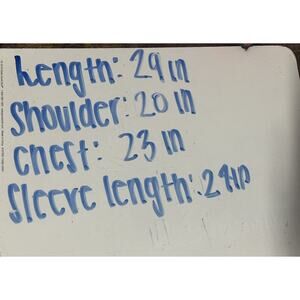 Length: 29 in
Shoulder: 20 in
Chest: 23 in
Sleeve length: 24in